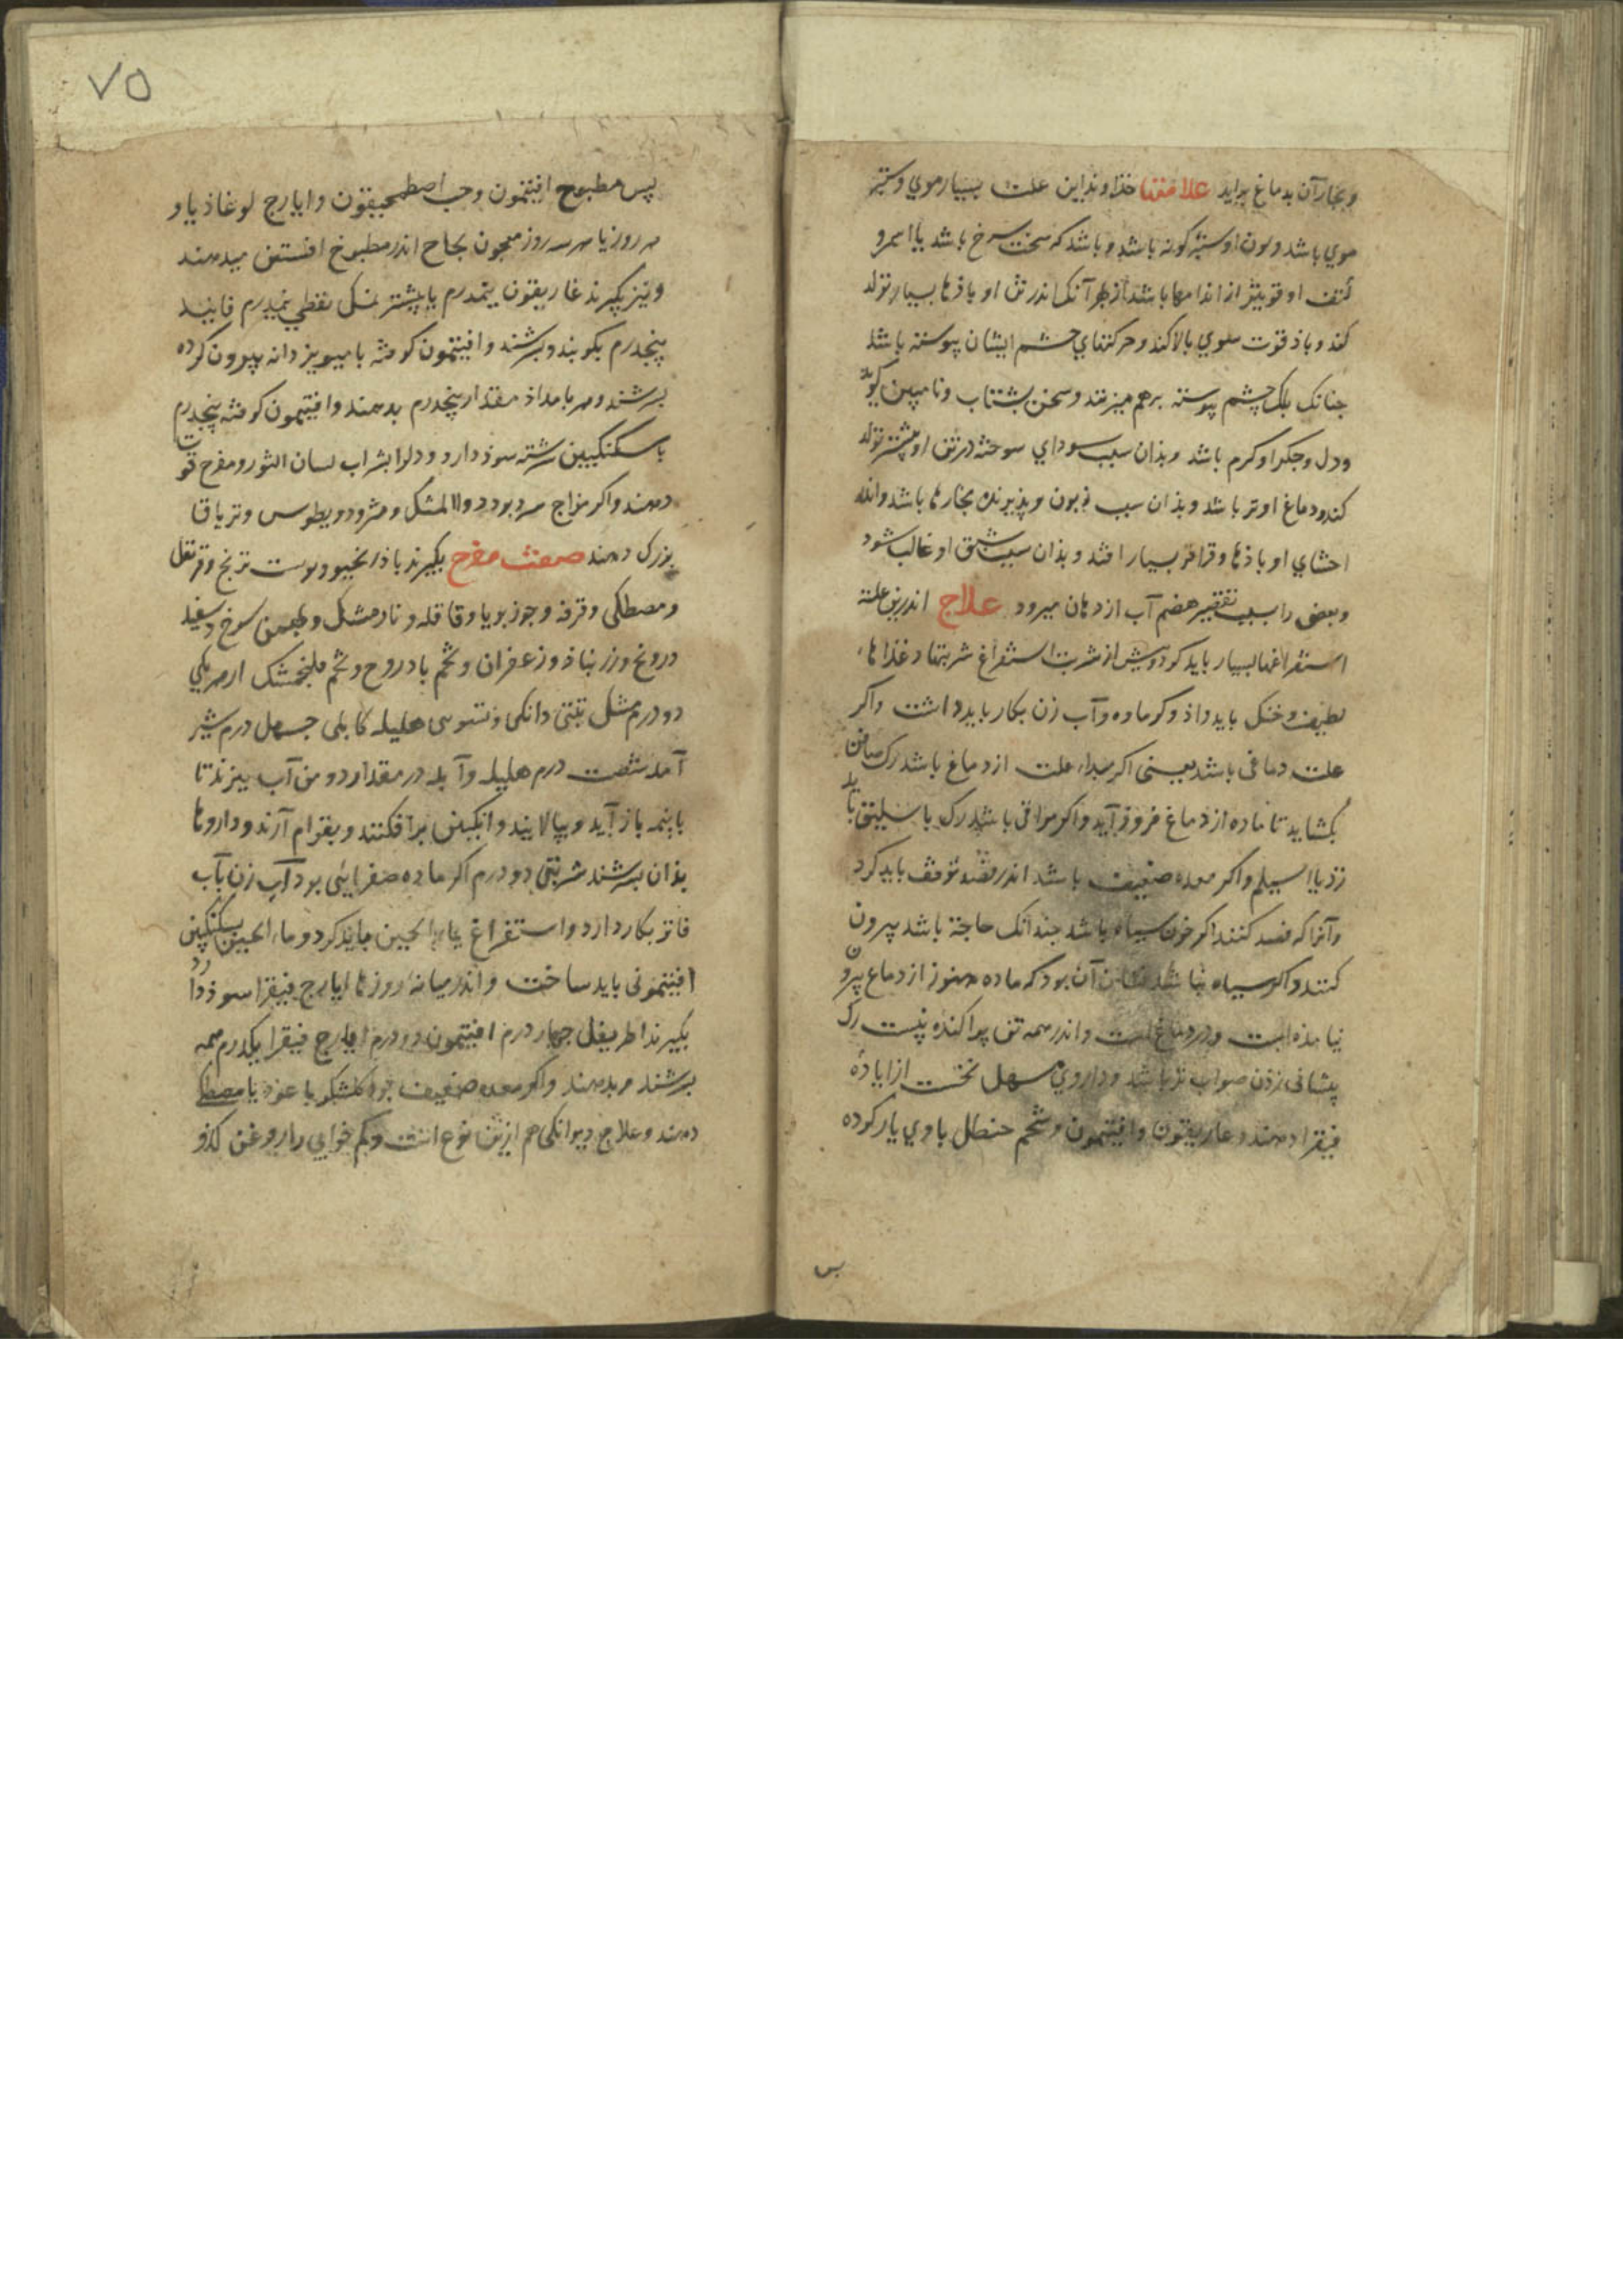 و بخار آن بدماغ برآید علامتها خذاوند این علت بسیار موی و ستبر
موی باشد و لون او ستبر کونه باشد و باشد که سخت سرخ باشد یا اسمر و
کتف او قوی‌تر از اندامها باشد از بهر آنک اندر تن او باذها بسیار تولد
کند و باذ قوت سوی بالا کند و حرکتهای چشم ایشان پیوسته باشد
چنانک پلک چشم پیوسته برهم میزنند و سخن بشتاب و نامبین کوید
و دل و جکر او کرم باشد و بذان سبب سودای سوخته در تن او بیشتر تولد
کند و دماغ او تر باشد و بذان سبب زبون و پذیرنده بخارها باشد و اندر
احشای او باذها و قراقر بسیار افتد و بذان سبب شبق او غالب شود
و بعضی را سبب تقصیر هضم آب از دهان میرود علاج اندرین علت
استفراغها بسیار باید کرد و پیش از شربت استفراغ شربتها و غذاهاء
لطیف و خنک باید داذ و کرماوه و آب زن بکار باید داشت و اکر
علت دماغی باشد یعنی اکر مبداء علت از دماغ باشد رک صافن
بکشاید تا ماده از دماغ فروذ آید و اکر مراقی باشد رک باسلیق باید
زد یا اسیلم و اکر معده ضعیف باشد اندر فصد توقف باید کرد
و آنرا که فصد کنند اکر خون سیاه باشد چندانک حاجة باشد بیرون
کنند و اکر سیاه نباشد نشان آن بود که ماده هنوز از دماغ بیرون
نیامذه است و در دماغ است و اندر همه تن پراکنده نیست رک
پیشانی زذن صواب تر باشد و داروی مسهل نخست از ایاره
فیقرا دهند و غاریقون و افیتمون و شحم حنظل با وی یار کرده
پس
۷۵
پس مطبوخ افیتمون و حب اصطمخیقون و ایارج لوغاذیا و
هر روز یا هر سه روز معجون نجاح اندر مطبوخ افسنتین میدهند
و نیز بکیرند غاریقون نیمدرم یا بیشتر نمک نفطی نیمدرم فانید
پنجدرم بکوبند و بسرشند و افیتمون کوفته با میویز دانه بیرون کرده
بسرشند و هر بامداذ مقدار پنجدرم بدهند و افیتمون کوفته پنجدرم
با سکنکبین سرشته سوذ دارد و دل را بشراب لسان الثور و مفرح قوت
دهند و اکر مزاج سرد بود دواالمشک و مثرودیطوس و تریاق
بزرک دهند صفت مفرح بکیرند باذرنجبویه و پوست ترنج و قرنفل
و مصطکی و قرفه و جوزبویا و قاقله و نارمشک و بهمن سرخ و سفید
درونج و زرنباذ و زعفران و تخم بادروج و تخم فلنجمشک از هر یکی
دو درم مشک تبتی دانکی و تسوی هلیله کابلی چهل درم شیر
آمله شصت درم هلیله و آمله در مقدار دو من آب بپزند تا
با نیمه باز آید و بپالایند و انکبین برافکنند و بقوام آرند و داروها
بذان بسرشند شربتی دو درم اکر ماده صفرایی بود آب زن بآب
فاتر بکار دارد و استفراغ بماء الجبن باید کرد و ماء الجبن بسکنکبین
افیتمونی باید ساخت و اندر میانه روزها ایارج فیقرا سوذ دارد
بکیرند اطریفل چهار درم افیتمون دو درم ایارج فیقرا یکدرم همه
بسرشند و بدهند و اکر معده ضعیف بود کلشکر با عود یا مصطکی
دهند و علاج دیوانکی هم ازین نوع است و بکم خوابی را روغن کذو